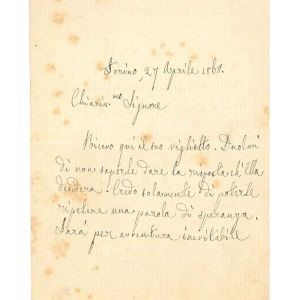 Torino, 27 Aprile 1868.
Chiariss.mo Signore
Ricevo qui il suo viglietto. Duolmi
di non saperle dare la risposta ch'Ella
desidera. Credo solamente di poterle
ripetere una parola di speranza.
Sarà per avventura inevitabile